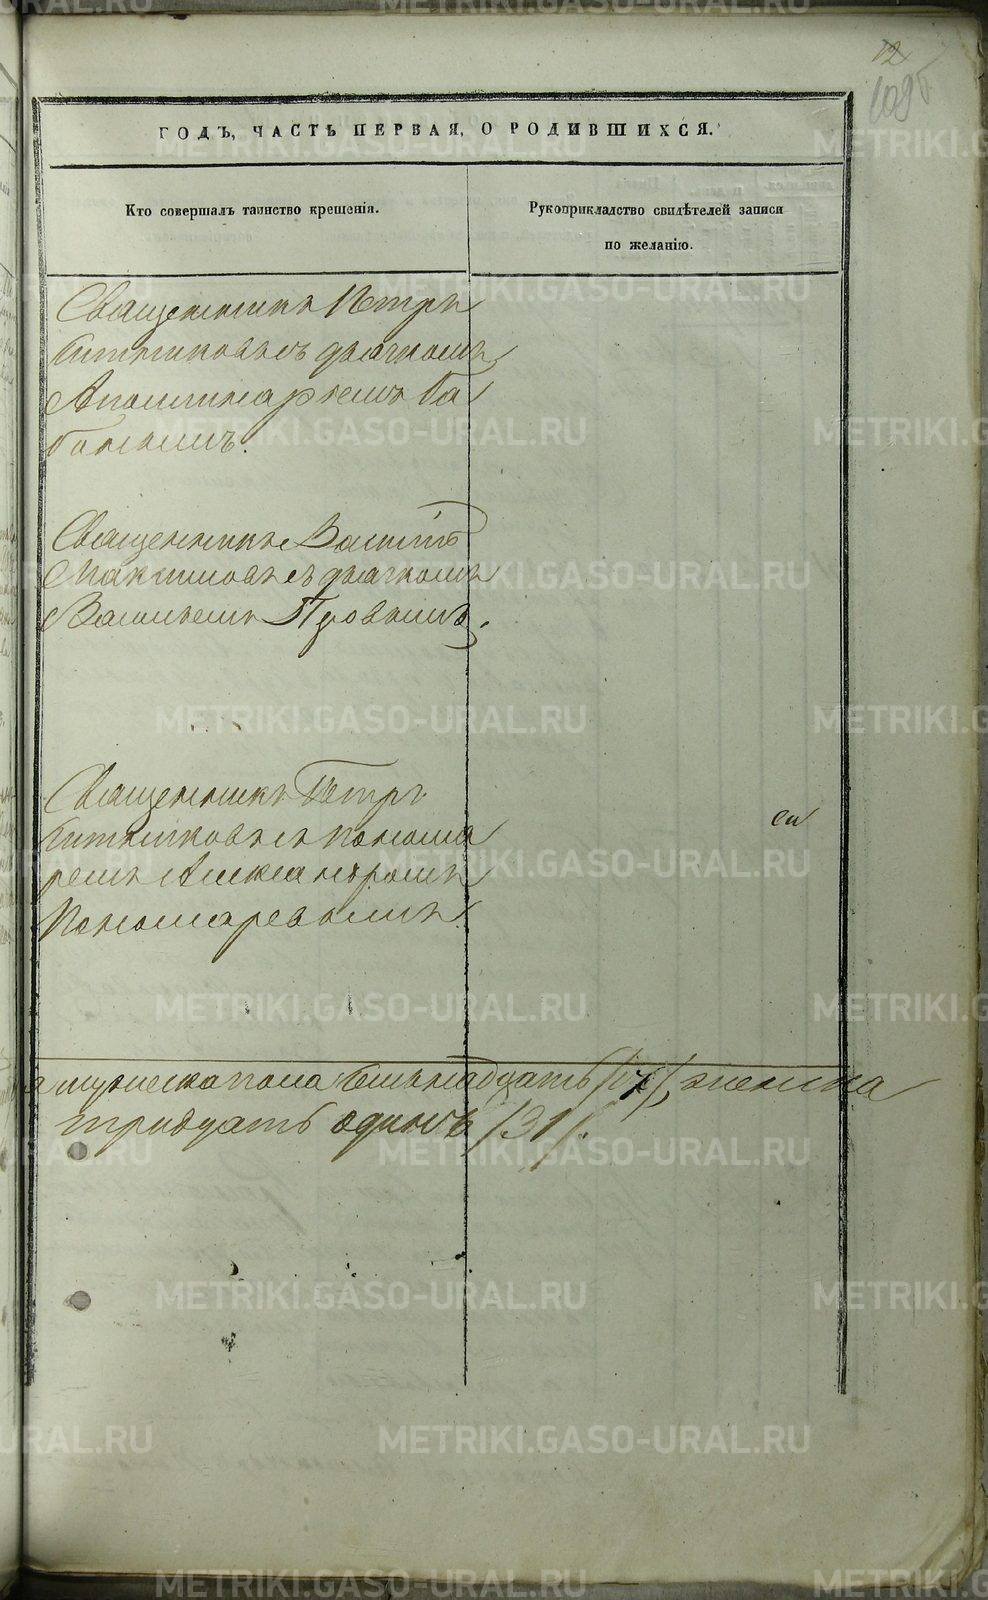 12
ГОДЪ, ЧАСТЬ ПЕРВАЯ, О РОДИВШИХСЯ.
Кто совершалъ таинство крещенія.
Рукоприкладство свидѣтелей записи
по желанію.
Священникъ Петръ
съ дьячкомъ
Аполлинаріемъ Ба
Священникъ Василій
Максимовъ съ дьячкомъ
Васильемъ
Священникъ Петръ
съ понома
ремъ Александромъ
Пономаревымъ
мужеска пола семьнадцать /17/, женска
тридцать одинъ /31/.
METRIKI.GASO-URAL.RU